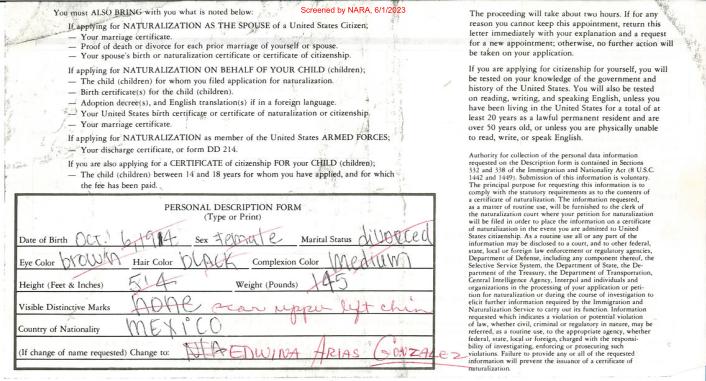 Screened by NARA, 6/1/2023
You must ALSO BRING with you what is noted below:
If applying for NATURALIZATION AS THE SPOUSE of a United States Citizen;
— Your marriage certificate.
— Proof of death or divorce for each prior marriage of yourself or spouse.
— Your spouse's birth or naturalization certificate or certificate of citizenship.
If applying for NATURALIZATION ON BEHALF OF YOUR CHILD (children);
— The child (children) for whom you filed application for naturalization.
— Birth certificate(s) for the child (children).
— Adoption decree(s), and English translation(s) if in a foreign language.
— Your United States birth certificate or certificate of naturalization or citizenship.
— Your marriage certificate.
If applying for NATURALIZATION as member of the United States ARMED FORCES;
— Your discharge certificate, or form DD 214.
If you are also applying for a CERTIFICATE of citizenship FOR your CHILD (children);
— The child (children) between 14 and 18 years for whom you have applied, and for which
the fee has been paid.
PERSONAL DESCRIPTION FORM
(Type or Print)
Date of Birth Oct. 1914 Sex Female Marital Status divorced
Eye Color brown Hair Color BLACK Complexion Color Medium
Height (Feet & Inches) 5'4 Weight (Pounds) 145
Visible Distinctive Marks none scar upper left chin
Country of Nationality MEXICO
(If change of name requested) Change to: N/A EDWINA ARIAS GONZALEZ
The proceeding will take about two hours. If for any
reason you cannot keep this appointment, return this
letter immediately with your explanation and a request
for a new appointment; otherwise, no further action will
be taken on your application.
If you are applying for citizenship for yourself, you will
be tested on your knowledge of the government and
history of the United States. You will also be tested
on reading, writing, and speaking English, unless you
have been living in the United States for a total of at
least 20 years as a lawful permanent resident and are
over 50 years old, or unless you are physically unable
to read, write, or speak English.
Authority for collection of the personal data information
requested on the Description form is contained in Sections
332 and 338 of the Immigration and Nationality Act (8 U.S.C.
1442 and 1449). Submission of this information is voluntary.
The principal purpose for requesting this information is to
comply with the statutory requirements as to the contents of
a certificate of naturalization. The information requested,
as a matter of routine use, will be furnished to the clerk of
the naturalization court where your petition for naturalization
will be filed in order to place the information on a certificate
of naturalization in the event you are admitted to United
States citizenship. As a routine use all or any part of the
information may be disclosed to a court, and to other federal,
state, local or foreign law enforcement or regulatory agencies,
Department of Defense, including any component thereof, the
Selective Service System, the Department of State, the De-
partment of the Treasury, the Department of Transportation,
Central Intelligence Agency, Interpol and individuals and
organizations in the processing of your application or peti-
tion for naturalization or during the course of investigation to
elicit further information required by the Immigration and
Naturalization Service to carry out its function. Information
requested which indicates a violation or potential violation
of law, whether civil, criminal or regulatory in nature, may be
referred, as a routine use, to the appropriate agency, whether
federal, state, local or foreign, charged with the responsi-
bility of investigating, enforcing or prosecuting such
violations. Failure to provide any or all of the requested
information will prevent the issuance of a certificate of
naturalization.